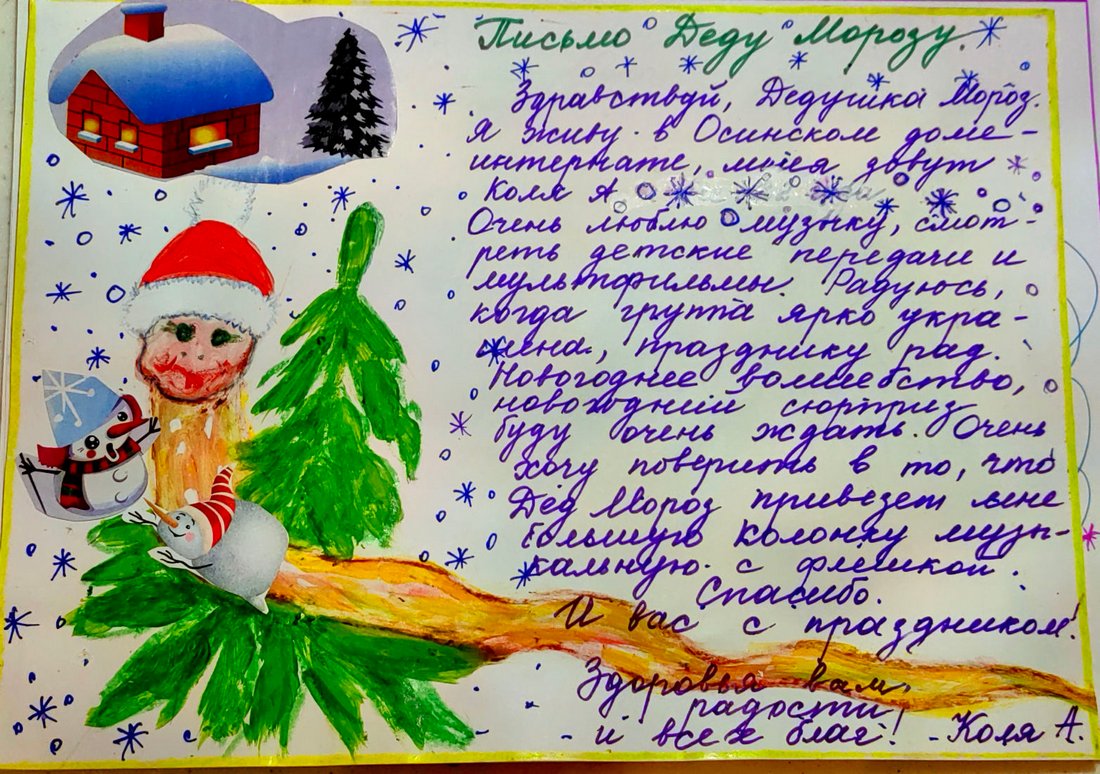 Письмо Деду Морозу.
Здравствуй, Дедушка Мороз.
Я живу в Осинском доме-
интернате, меня зовут
Коля А
Очень люблю музыку, смот-
реть детские передачи и
мультфильмы. Радуюсь,
когда группа ярко укра-
шена, празднику рад.
Новогоднее волшебство,
новогодний сюрприз
буду очень ждать. Очень
хочу поверить в то, что
Дед Мороз привезет мне
большую колонку музы-
кальную с флешкой.
Спасибо.
И вас с праздником!
Здоровья вам,
радости
и всех благ! - Коля А.